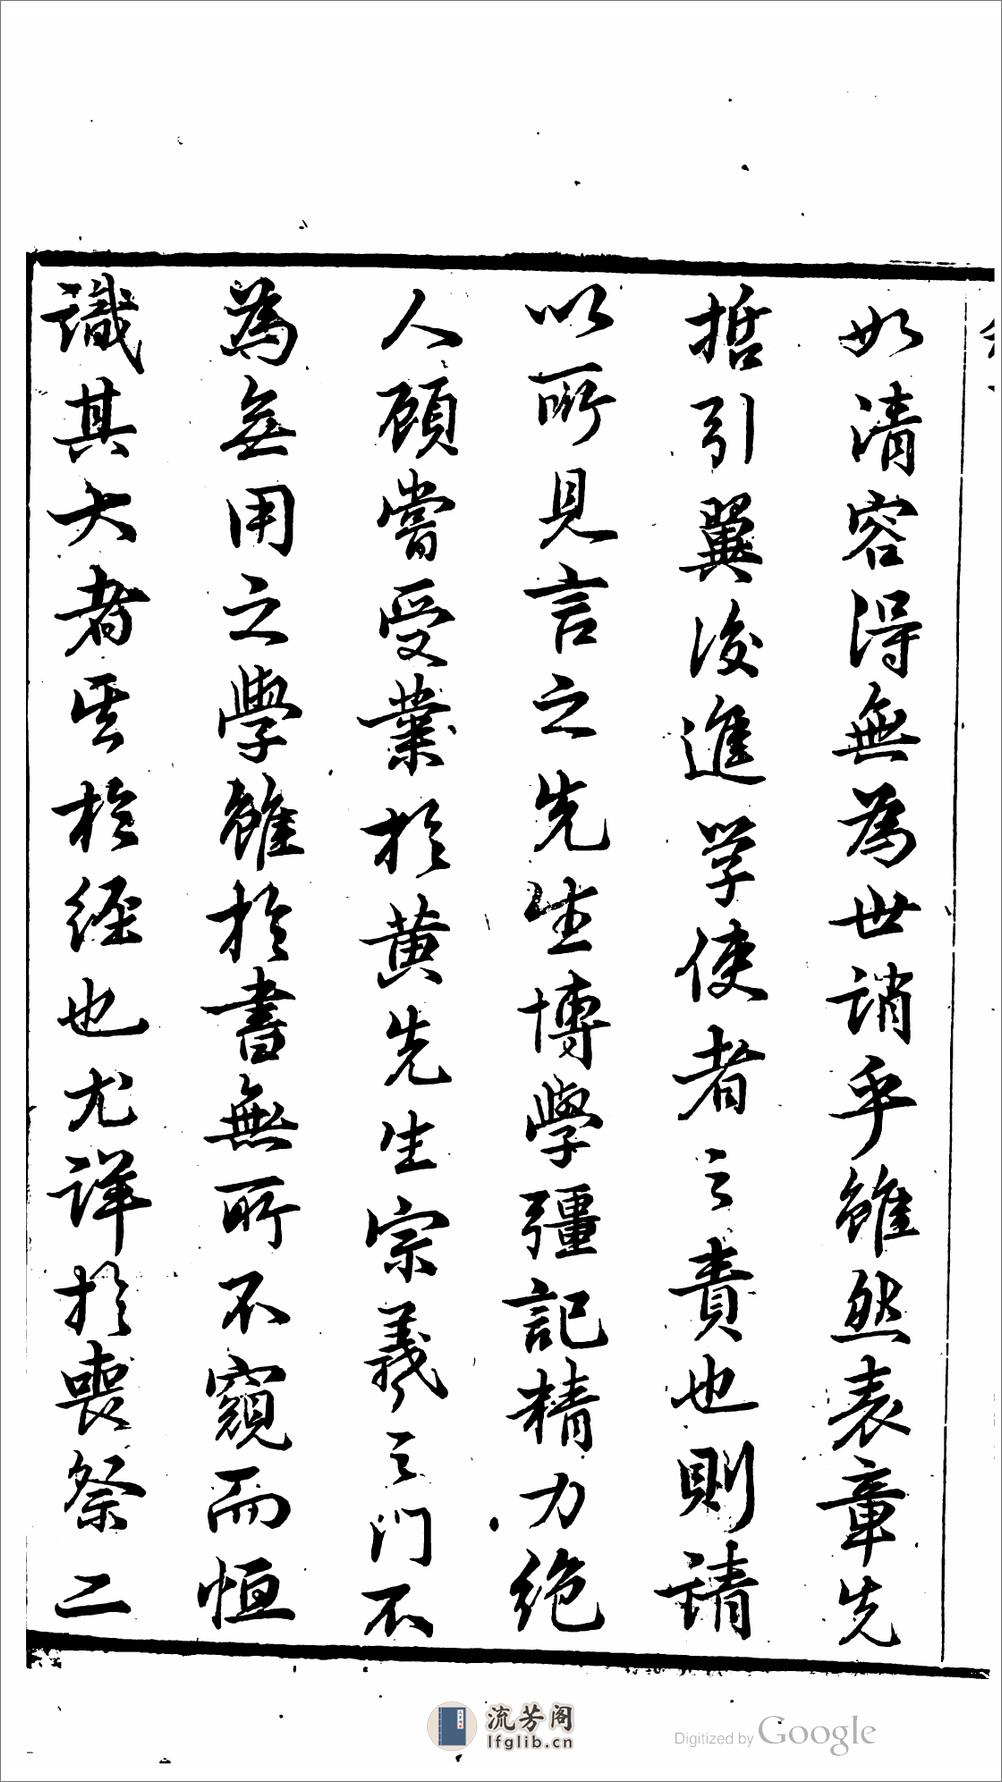 如清容得無為世誚乎雖然表章先
哲引翼後進學使者之責也則請
以所見言之先生博學彊記精力絶
人顧嘗受業於黄先生宗羲之門不
為無用之學雖於書無所不窺而恒
識其大者其於經也尤詳於喪祭二
流芳阁
lfglib.cn
Digitized by Google